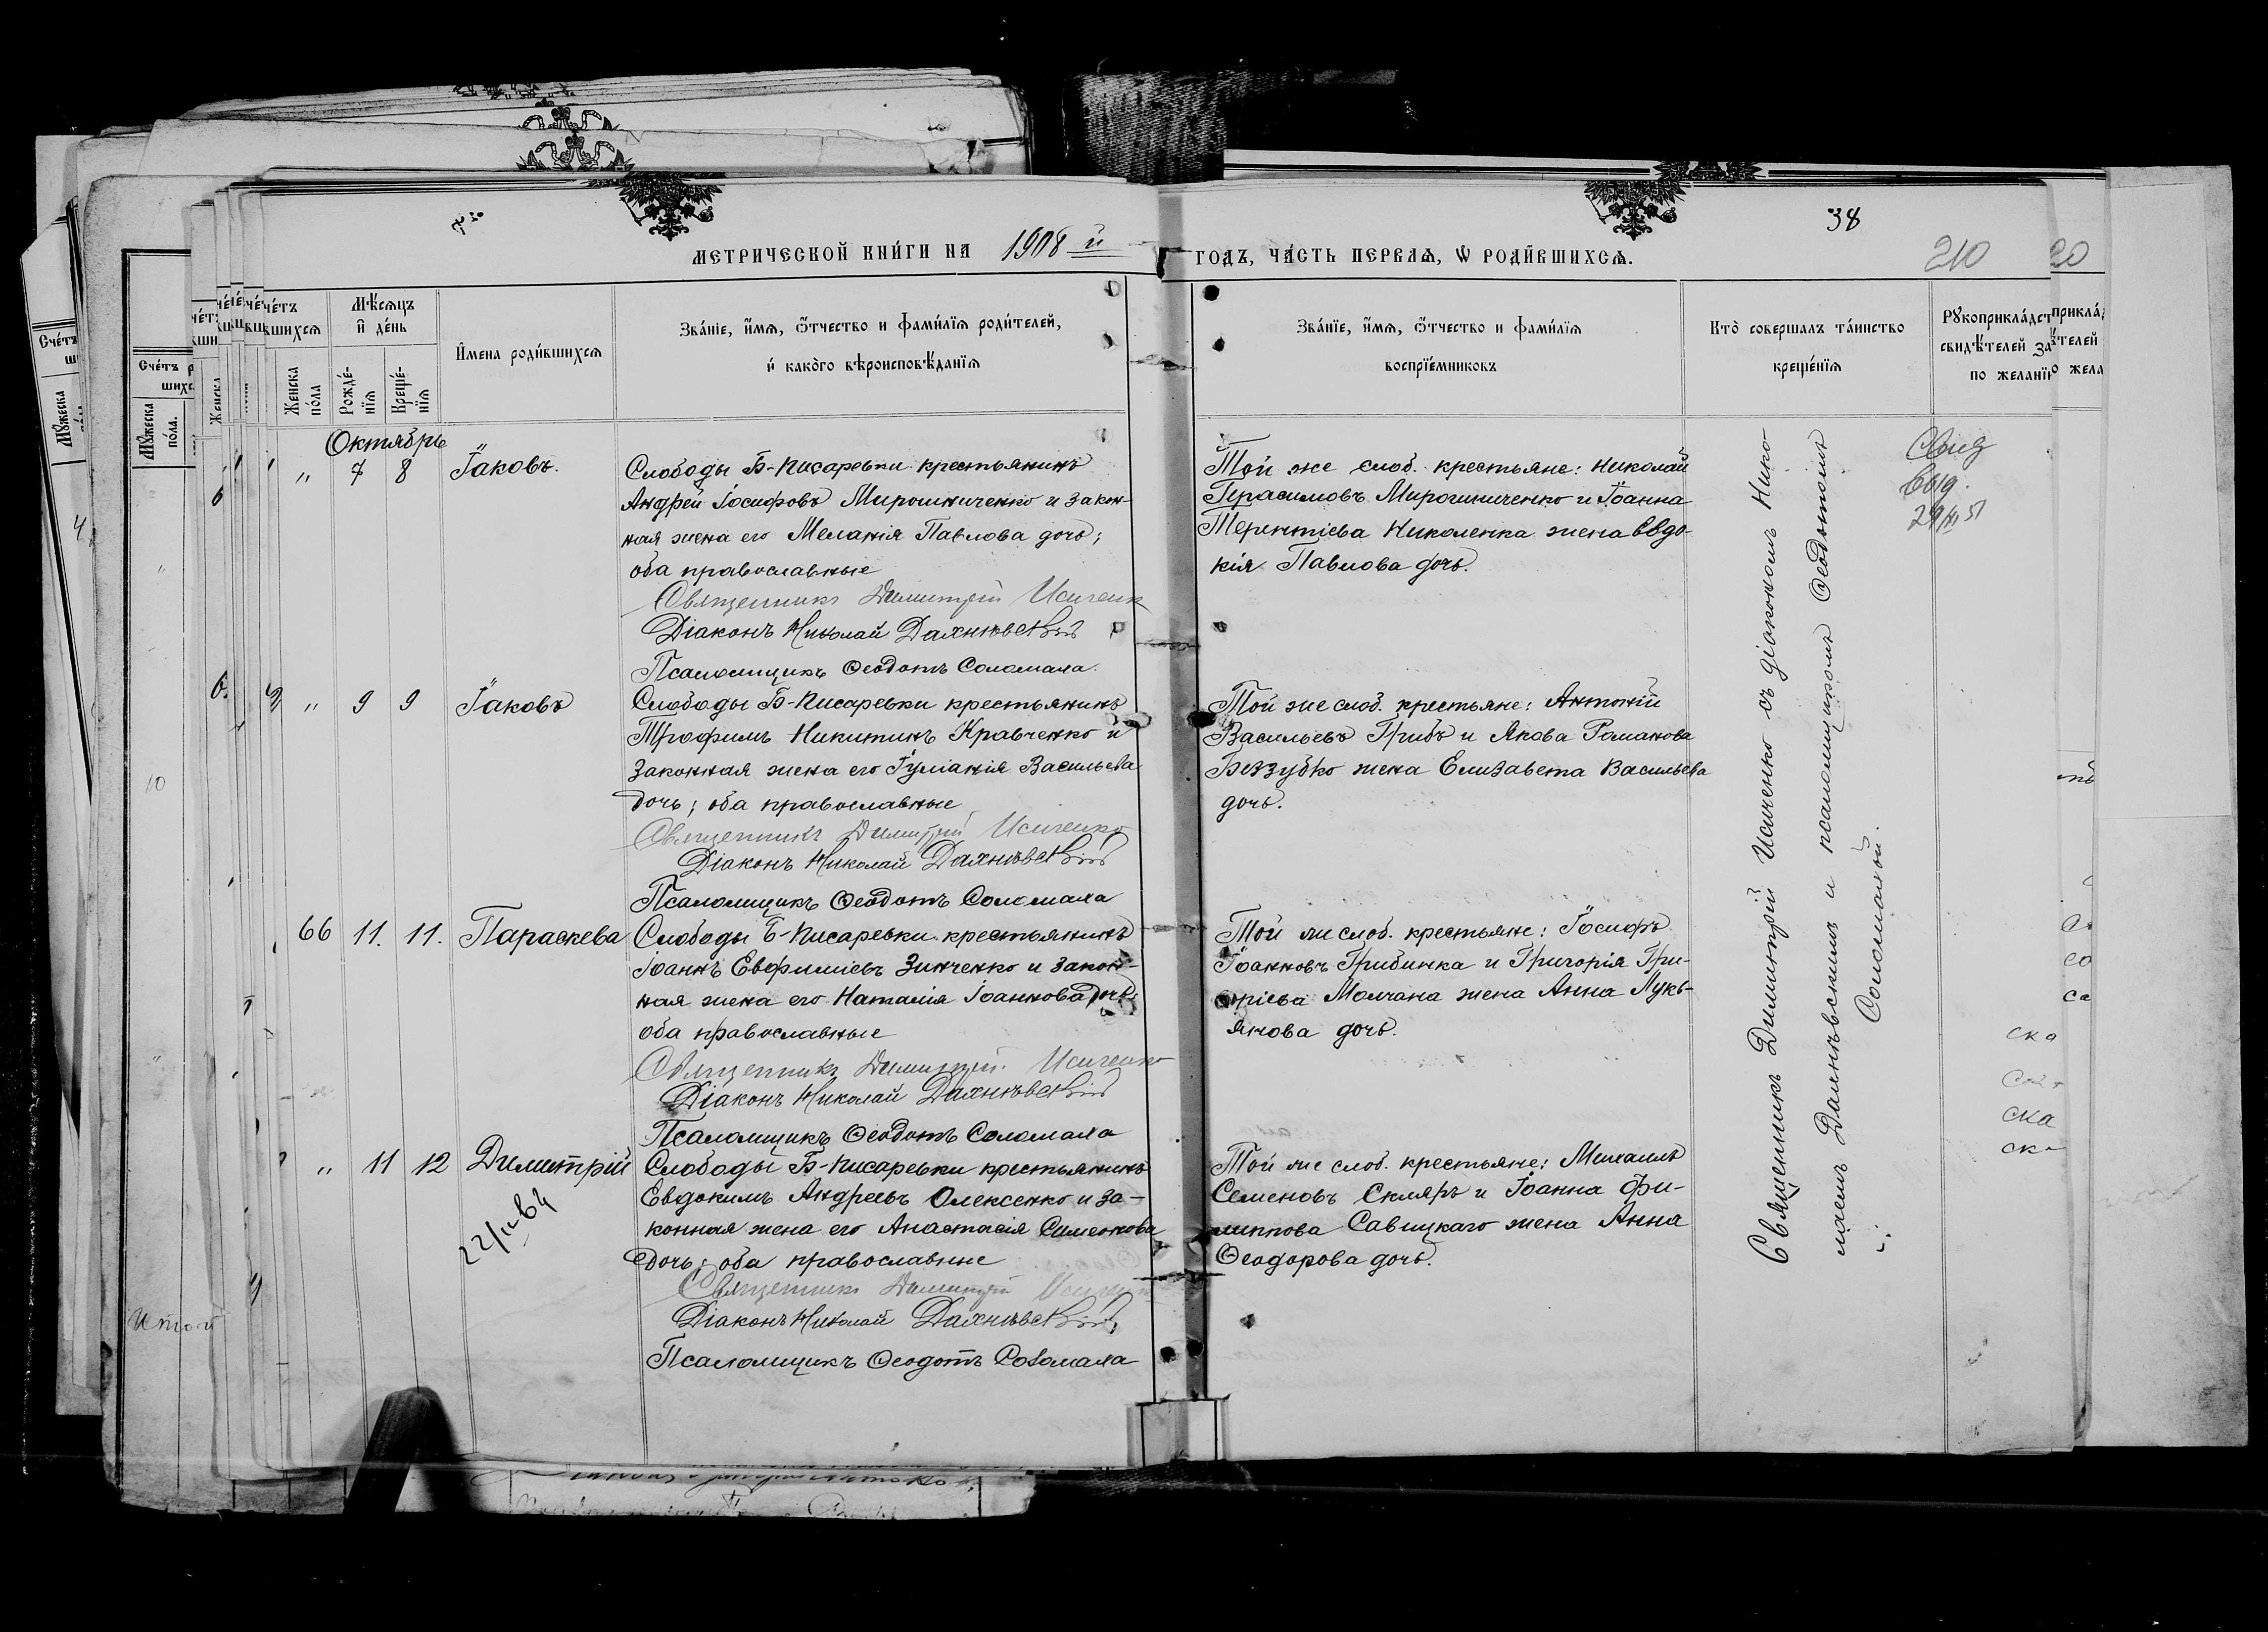 МЕТРИЧЕСКОЙ КНИ́ГИ НА 1908 й ГОДЪ, ЧА́СТЬ ПЕРВАѦ, Ѡ РОДИ́ВШИХСѦ.
38
210
20
Мѣ́сѧцъ
и҆ де́нь
Женска
по́ла
Рожде́-
нїѧ
Креще́-
нїѧ
И҆мена роди́вшихсѧ
Зва́нїе, и҆́мѧ, ѻ҆́тчество и фами́лїѧ роди́телей,
и҆ како́гѡ вѣроисповѣ́данїѧ
Зва́нїе, и҆́мѧ, ѻ҆́тчество и фами́лїѧ
воспрїе́мниковъ
Кто̀ соверша́лъ та́инство
креще́нїѧ
Рꙋкоприкла́дст
свидѣ́телей за
по жела́нїю
Октябрь
" 7 8 Іаковъ.
Слободы Б-Писаревки крестьянинъ
Андрей Іосифовъ Мирошниченко и закон-
ная жена его Меланія Павлова дочь;
оба православные
Священникъ Димитрій Исиченк
Діаконъ Николай Дахнѣвскій
Псаломщикъ Ѳеодотъ Соломаха.
Той же слоб. крестьяне: Николай
Герасимовъ Мирошниченко и Іоанна
Терентіева Николенка жена Евдо-
кія Павлова дочь.
Свид
выд.
" 9 9 Іаковъ
Слободы Б-Писаревки крестьянинъ
Трофимъ Никитинъ Кравченко и
законная жена его Іуліанія Васильева
дочь; оба православные
Священникъ Димитрій Исиченко
Діаконъ Николай Дахнѣвскій
Псаломщикъ Ѳеодотъ Соломаха
Той же слоб. крестьяне: Антоній
Васильевъ Грибъ и Якова Романова
Беззубко жена Елизавета Васильева
дочь.
66 11. 11. Параскева
Слободы Б-Писаревки крестьянинъ
Іоаннъ Евфиміевъ Зинченко и закон-
ная жена его Наталія Іоаннова дочь;
оба православные
Священникъ Димитрій Исиченко
Діаконъ Николай Дахнѣвскій
Псаломщикъ Ѳеодотъ Соломаха
Той же слоб. крестьяне: Іосифъ
Іоанновъ Грибинка и Григорія Гри-
горіева Молчана жена Анна Лукь-
янова дочь.
" 11 12 Димитрій
Слободы Б-Писаревки крестьянинъ
Евдокимъ Андреевъ Олексенко и за-
конная жена его Анастасія Симеонова
дочь; оба православные
Священникъ Димитрій Исичен
Діаконъ Николай Дахнѣвскій
Псаломщикъ Ѳеодотъ Соломаха
Той же слоб. крестьяне: Михаилъ
Семеновъ Скляръ и Іоанна Фи-
липпова Савицкаго жена Анна
Ѳеодорова дочь.
Священникъ Димитрій Исиченко съ діакономъ Нико
лаемъ Дахнѣвскимъ и псаломщикомъ Ѳеодотомъ
Соломахой.